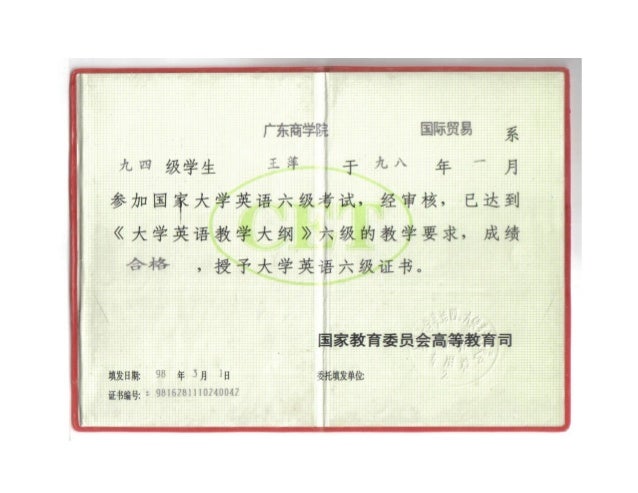 广东商学院 国际贸易 系
九四 级学生 王萍 于 九八 年 一 月
参加国家大学英语六级考试，经审核，已达到
《大学英语教学大纲》六级的教学要求，成绩
合格 ，授予大学英语六级证书。
CET
国家教育委员会高等教育司
填发日期: 98 年 3 月 1 日 委托填发单位:
证书编号: : 9816281110240042